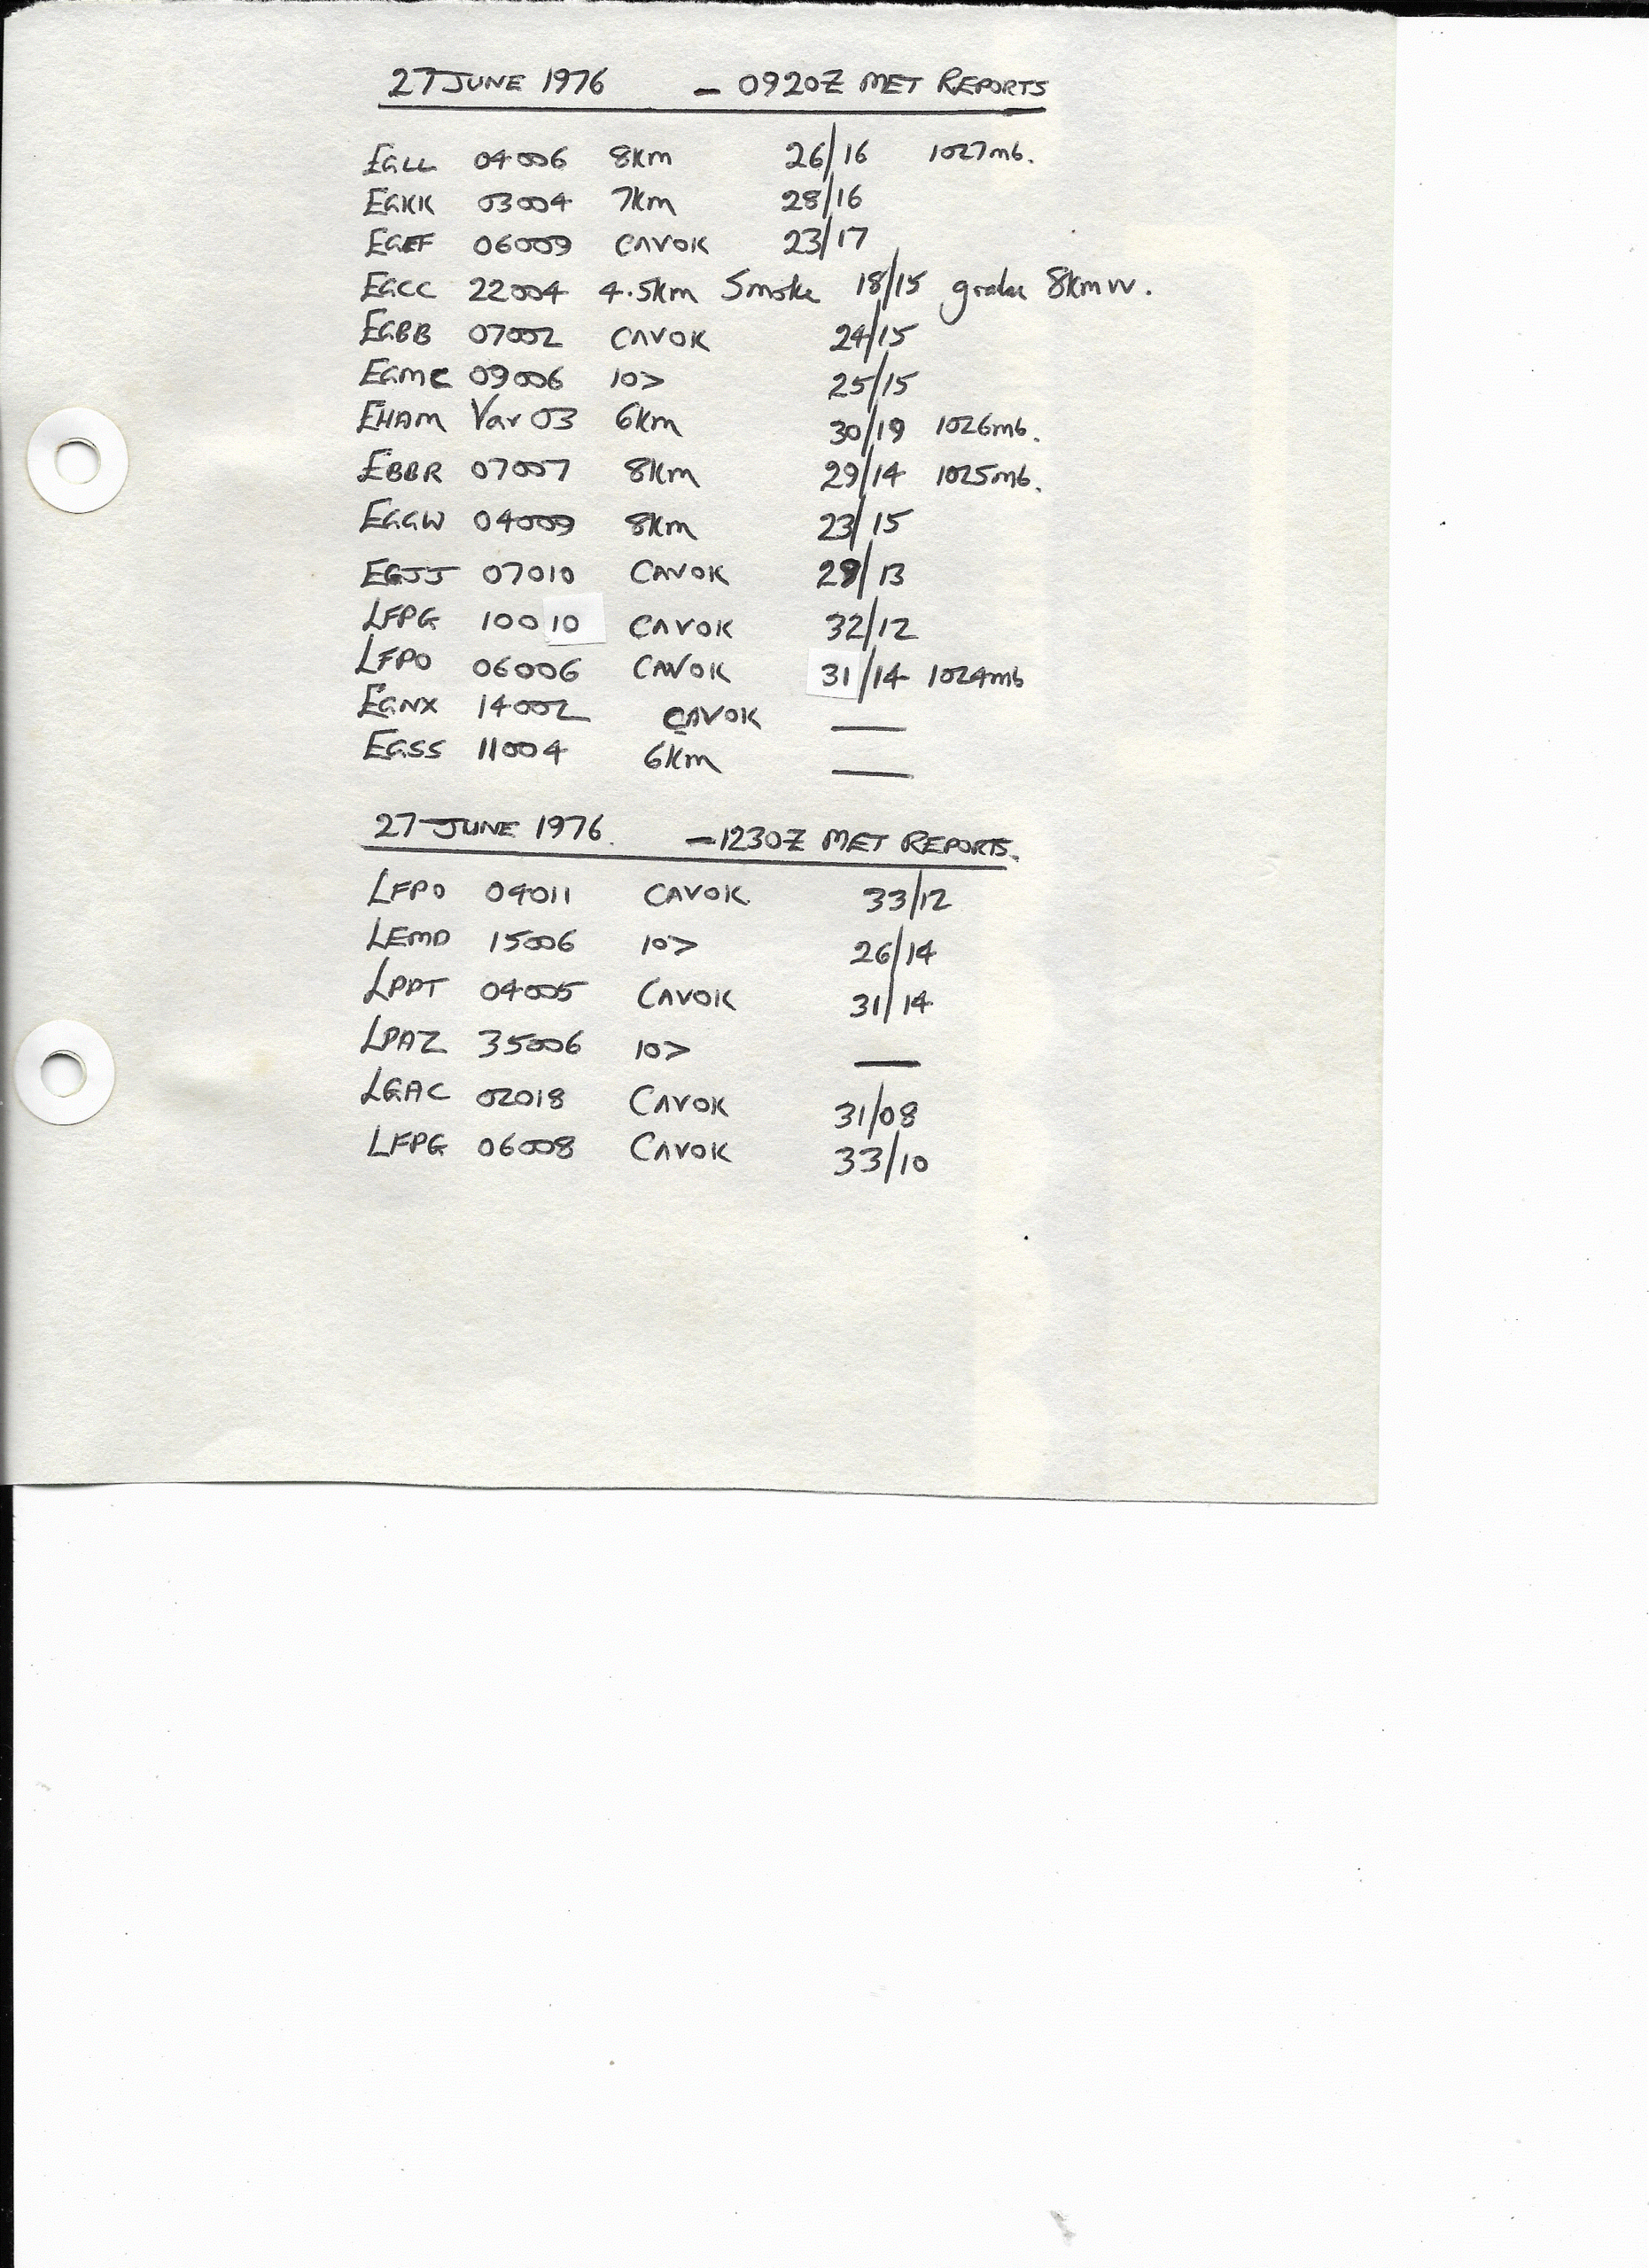 27 JUNE 1976 - 0920Z MET REPORTS
EGLL 04006 8km 26/16 1027mb.
EGKK 03004 7km 28/16
EGEF 06009 CAVOK 23/17
EGCC 22004 4.5km Smoke 18/15 8km W.
EGBB 07002 CAVOK 24/15
EGMC 09006 10> 25/15
EHAM Var 03 6km 30/19 1026mb.
EBBR 07007 8km 29/14 1025mb.
EGGW 04009 8km 23/15
EGJJ 07010 CAVOK 29/13
LFPG 10010 CAVOK 32/12
LFPO 06006 CAVOK 31/14 1024mb
EGNX 14002 CAVOK —
EGSS 11004 6km —
27 JUNE 1976. - 1230Z MET REPORTS.
LFPO 04011 CAVOK 33/12
LEMD 15006 10> 26/14
LPPT 04005 CAVOK 31/14
LPAZ 35006 10> —
LGAC 02018 CAVOK 31/08
LFPG 06008 CAVOK 33/10